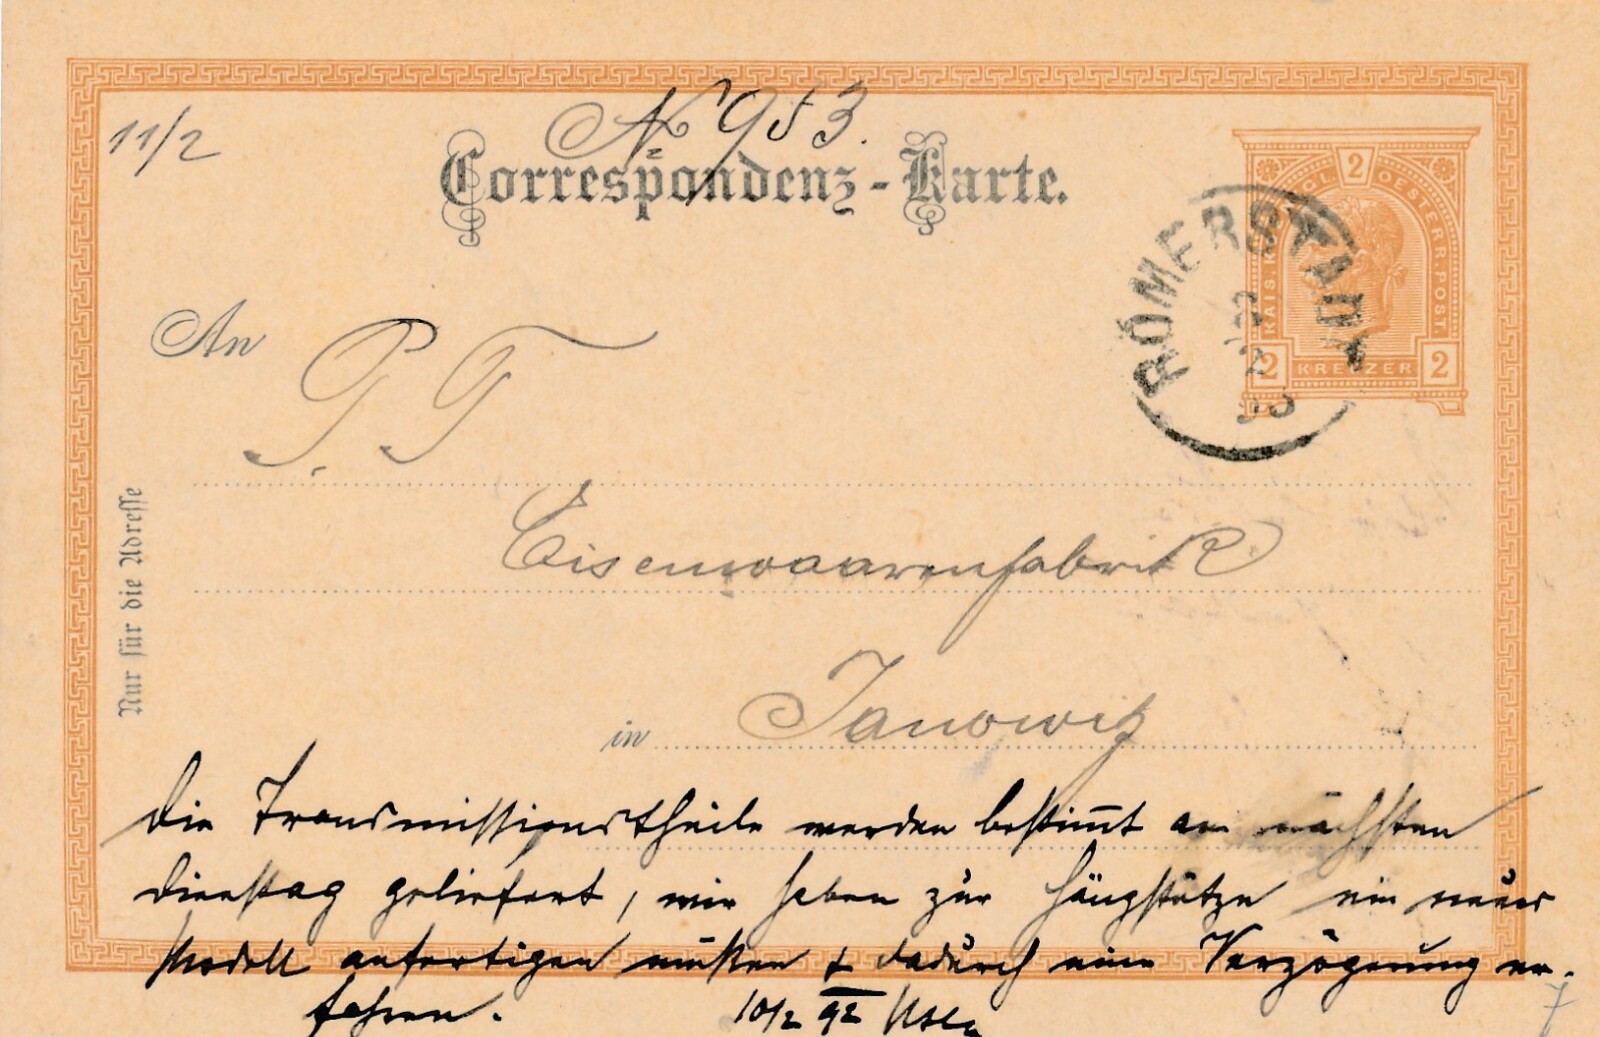 11/2
No 953.
Correspondenz-Karte.
KAIS. KGL. OESTERR. POST
2
2 KREUZER 2
RÖMERSTADT
An P. T.
Eisenwaarenfabrik
Nur für die Adresse
in Janowitz
Die Transmissionstheile werden bestimmt am nächsten
Dienstag geliefert, wir haben zur Hängstütze ein neues
Modell anfertigen müssen & dadurch eine Verzögerung er-
fahren. 10/2 92